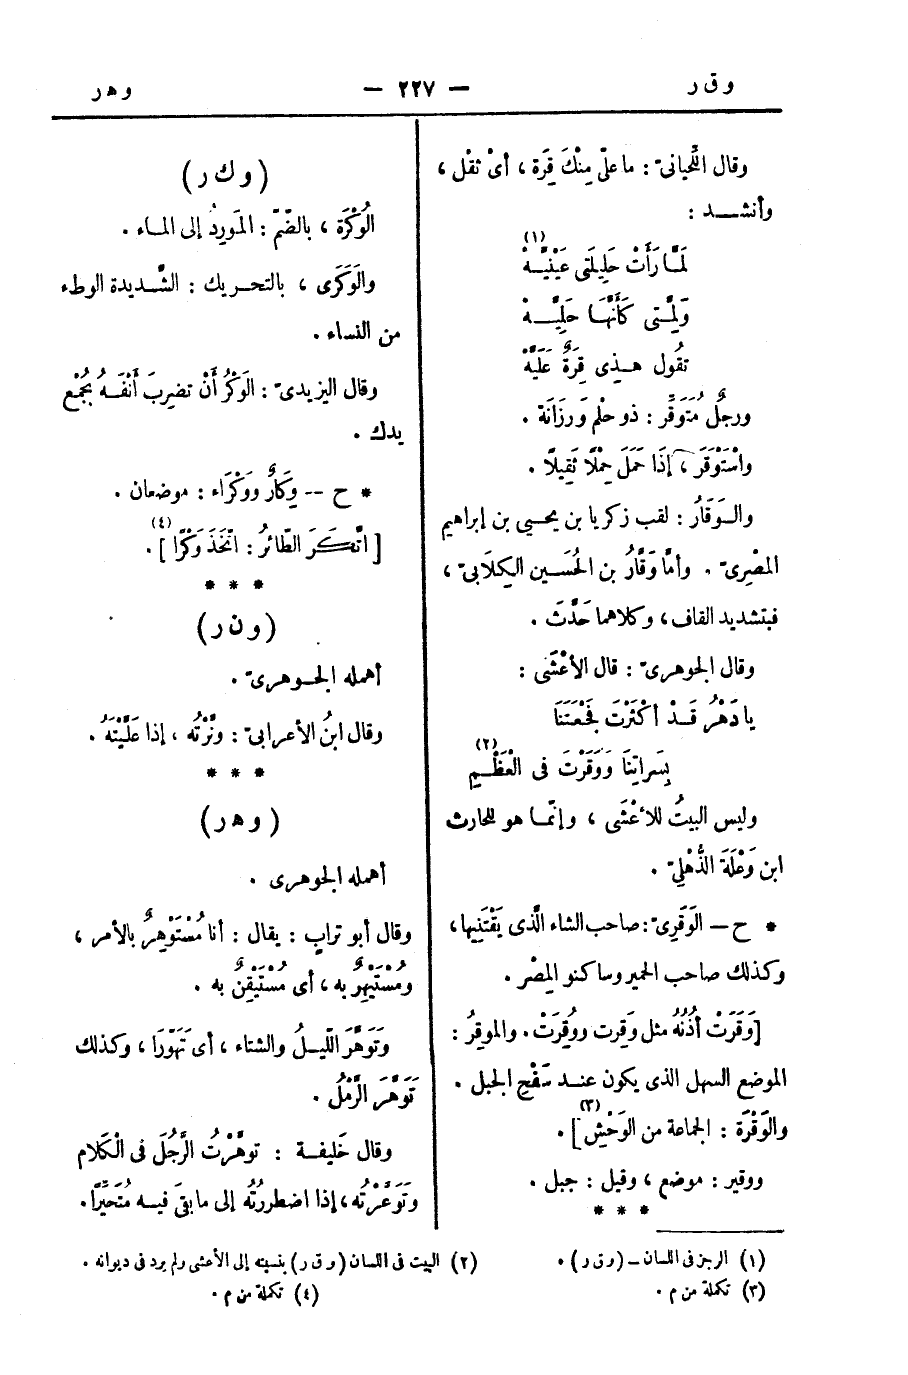 وقر
— ٢٢٧ —
وهر
وقال اللّحيانىّ : ما علىّ مِنْكَ قِرَة ، أىْ ثقْل ،
وأنشد :
لمَّا رَأَتْ حَلِيلَتِى عَيْنَيَّهْ (١)
وَلِمَّتِى كَأَنَّهَا حَلِيَّهْ
تقُول هذِى قِرَةٌ عَلَيَّهْ
ورجلٌ مُتَوَقِّر : ذو حلْم وَرزَانَة .
واسْتَوْقَرَ ، إذَا حَمَلَ حِمْلًا ثَقِيلًا .
والوَقَارُ : لقب زكريا بن يحيى بن إبراهيم
المصْرِىّ . وأمَّا وَقَّارُ بن الحُسَين الكِلَابىّ ،
فبتشديد القاف ، وكلاهما حَدَّثَ .
وقال الجوهرىّ : قال الأعْشَى :
يا دَهْرُ قَدْ أكْثَرْتَ فَجْعَتَنَا
بِسَراتِنَا وَوَقَرْتَ فى العْظْمِ (٢)
وليس البيتُ للأعْشَى ، وإنّما هو للحارث
ابن وَعْلَةَ الذُّهْلِىّ .
* ح — الوَقَرِىّ : صاحب الشاء الَّذى يَقْتَنِيها ،
وكذلك صاحب الحمير وساكنو المِصْر .
[وَقَرَتْ أُذُنُهُ مثل وَقِرت ووُقِرَتْ . والموقِرُ :
الموضع السهل الذى يكون عند سَفْحِ الجبل .
والوَقْرَة : الجماعة من الوَحْشِ (٣)] .
ووقير : موضع ، وقيل : جبل .
* * *
(وكر)
الوُكْرَة ، بالضّمّ : المَورِدُ إلى الماء .
والوَكَرَى ، بالتحريك : الشَّديدة الوطء
من النساء .
وقال اليزيدىّ : الوَكْرُ أَنْ تضرِبَ أَنْفَهُ بجُمْع
يدك .
* ح -- وِكَارٌ ووَكْرَاء : موضعان .
[اتَّكَرَ الطَّائرُ : اتّخَذَ وَكْرًا (٤)] .
* * *
(ونر)
أهمله الجوهرىّ .
وقال ابنُ الأعرابىّ : ونَّرْتُه ، إذا عَلَّيْتَهُ .
* * *
(وهر)
أهمله الجوهرى .
وقال أبو ترابٍ : يقال : أنا مُسْتَوْهِرٌ بالأمر ،
ومُسْتَيْهِرٌ به ، أى مُسْتَيْقِنٌ به .
وتَوَهَّرَ اللّيلُ والشتاء ، أى تَهَوّرَا ، وكذلك
تَوَهَّرَ الرَّمْلُ .
وقال خَليفة : توهَّرْتُ الرَّجُلَ فى الْكَلام
وتَوعَّرْتُه ، إذا اضطررتُهُ إلى ما بقىَ فيه مُتَحَيِّرًا .
(١) الرجز فى اللسان – (وقر) .
(٢) البيت فى اللسان (وقر) بنسبته إلى الأعشى ولم يرد فى ديوانه .
(٣) تكملة من م .
(٤) تكملة من م .